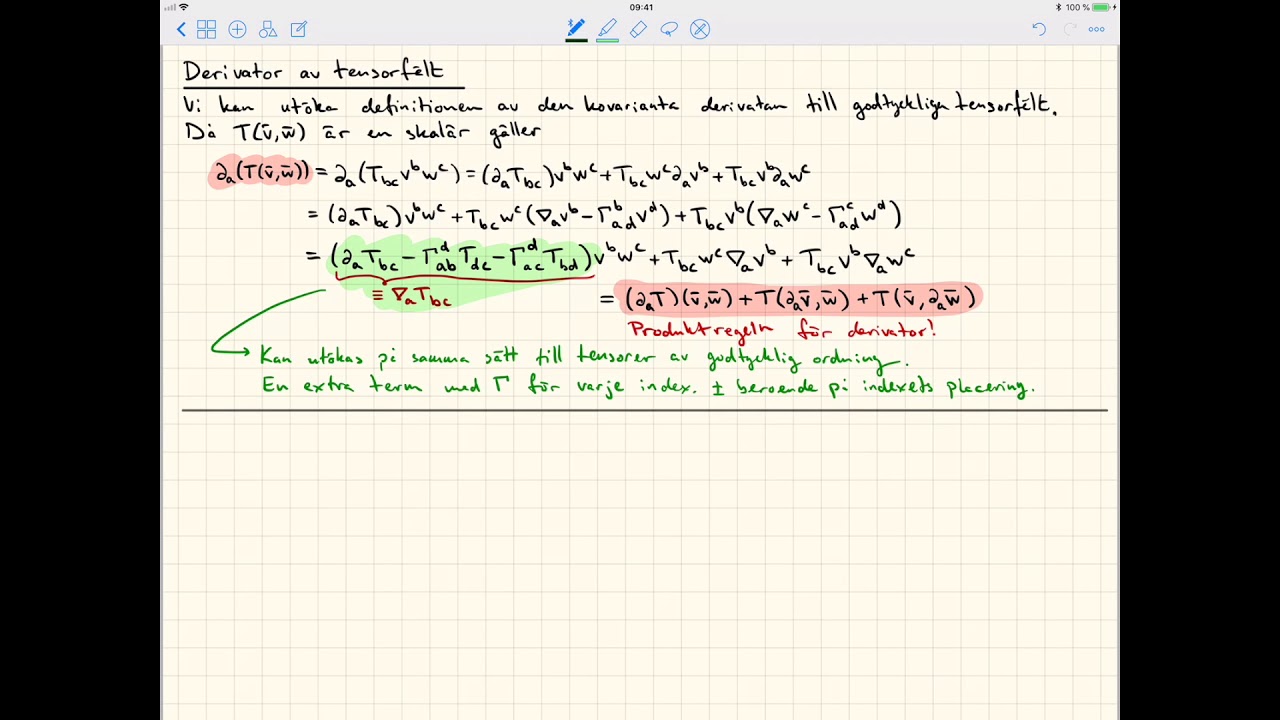 09:41
100 %
Derivator av tensorfält
Vi kan utöka definitionen av den kovarianta derivatan till godtyckliga tensorfält.
Då T(v̄,w̄) är en skalär gäller
∂ₐ(T(v̄,w̄)) = ∂ₐ(T_bc v^b w^c) = (∂ₐT_bc)v^b w^c + T_bc w^c ∂ₐv^b + T_bc v^b ∂ₐw^c
= (∂ₐT_bc)v^b w^c + T_bc w^c(∇ₐv^b − Γ^b_ad v^d) + T_bc v^b(∇ₐw^c − Γ^c_ad w^d)
= (∂ₐT_bc − Γ^d_ab T_dc − Γ^d_ac T_bd)v^b w^c + T_bc w^c ∇ₐv^b + T_bc v^b ∇ₐw^c
≡ ∇ₐT_bc
= (∂ₐT)(v̄,w̄) + T(∂ₐv̄,w̄) + T(v̄,∂ₐw̄)
Produktregeln för derivator!
Kan utökas på samma sätt till tensorer av godtycklig ordning.
En extra term med Γ för varje index. ± beroende på indexets placering.